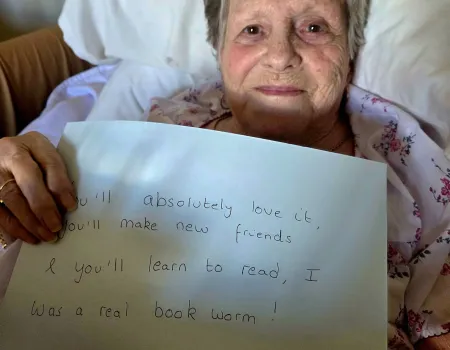 You'll absolutely love it,
You'll make new friends
& you'll learn to read, I
Was a real book worm !